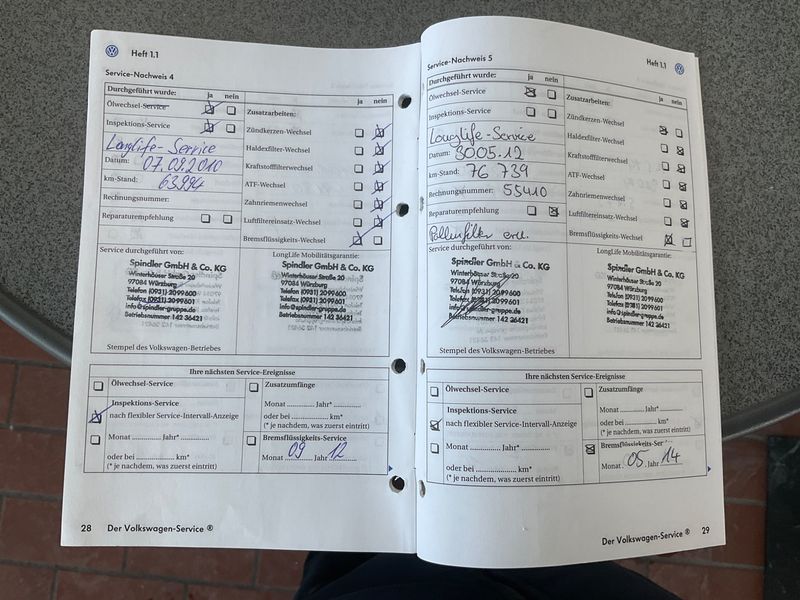 Heft 1.1
Service-Nachweis 4
Durchgeführt wurde: ja nein
Ölwechsel-Service
Inspektions-Service
Longlife-Service
Datum: 07.09.2010
km-Stand: 63994
Rechnungsnummer:
Reparaturempfehlung
ja nein
Zusatzarbeiten:
Zündkerzen-Wechsel
Haldexfilter-Wechsel
Kraftstofffilterwechsel
ATF-Wechsel
Zahnriemenwechsel
Luftfiltereinsatz-Wechsel
Bremsflüssigkeits-Wechsel
Service durchgeführt von:
Spindler GmbH & Co. KG
Winterhäuser Straße 20
97084 Würzburg
Telefon (0931) 2099600
Telefax (0931) 2099601
info@spindler-gruppe.de
Betriebsnummer 142 36421
Stempel des Volkswagen-Betriebes
LongLife Mobilitätsgarantie:
Spindler GmbH & Co. KG
Winterhäuser Straße 20
97084 Würzburg
Telefon (0931) 2099600
Telefax (0931) 2099601
info@spindler-gruppe.de
Betriebsnummer 142 36421
Ihre nächsten Service-Ereignisse
Ölwechsel-Service
Inspektions-Service
nach flexibler Service-Intervall-Anzeige
Monat ............. Jahr* .............
oder bei ............. km*
(* je nachdem, was zuerst eintritt)
Zusatzumfänge
Monat ............. Jahr* .............
oder bei ............. km*
(* je nachdem, was zuerst eintritt)
Bremsflüssigkeits-Service
Monat 09 Jahr 12
28 Der Volkswagen-Service ®
Service-Nachweis 5
Heft 1.1
Durchgeführt wurde: ja nein
Ölwechsel-Service
Inspektions-Service
Longlife-Service
Datum: 3005.12
km-Stand: 76 739
Rechnungsnummer: 55410
Reparaturempfehlung
Pollenfilter ern.
ja nein
Zusatzarbeiten:
Zündkerzen-Wechsel
Haldexfilter-Wechsel
Kraftstofffilterwechsel
ATF-Wechsel
Zahnriemenwechsel
Luftfiltereinsatz-Wechsel
Bremsflüssigkeits-Wechsel
Service durchgeführt von:
Spindler GmbH & Co. KG
Winterhäuser Straße 20
97084 Würzburg
Telefon (0931) 2099600
Telefax (0931) 2099601
info@spindler-gruppe.de
Betriebsnummer 142 36421
Stempel des Volkswagen-Betriebes
LongLife Mobilitätsgarantie:
Spindler GmbH & Co. KG
Winterhäuser Straße 20
97084 Würzburg
Telefon (0931) 2099600
Telefax (0931) 2099601
info@spindler-gruppe.de
Betriebsnummer 142 36421
Ihre nächsten Service-Ereignisse
Ölwechsel-Service
Inspektions-Service
nach flexibler Service-Intervall-Anzeige
Monat ............. Jahr* .............
oder bei ............. km*
(* je nachdem, was zuerst eintritt)
Zusatzumfänge
Monat ............. Jahr* .............
oder bei ............. km*
(* je nachdem, was zuerst eintritt)
Bremsflüssigkeits-Ser
Monat 05 Jahr 14
Der Volkswagen-Service ® 29